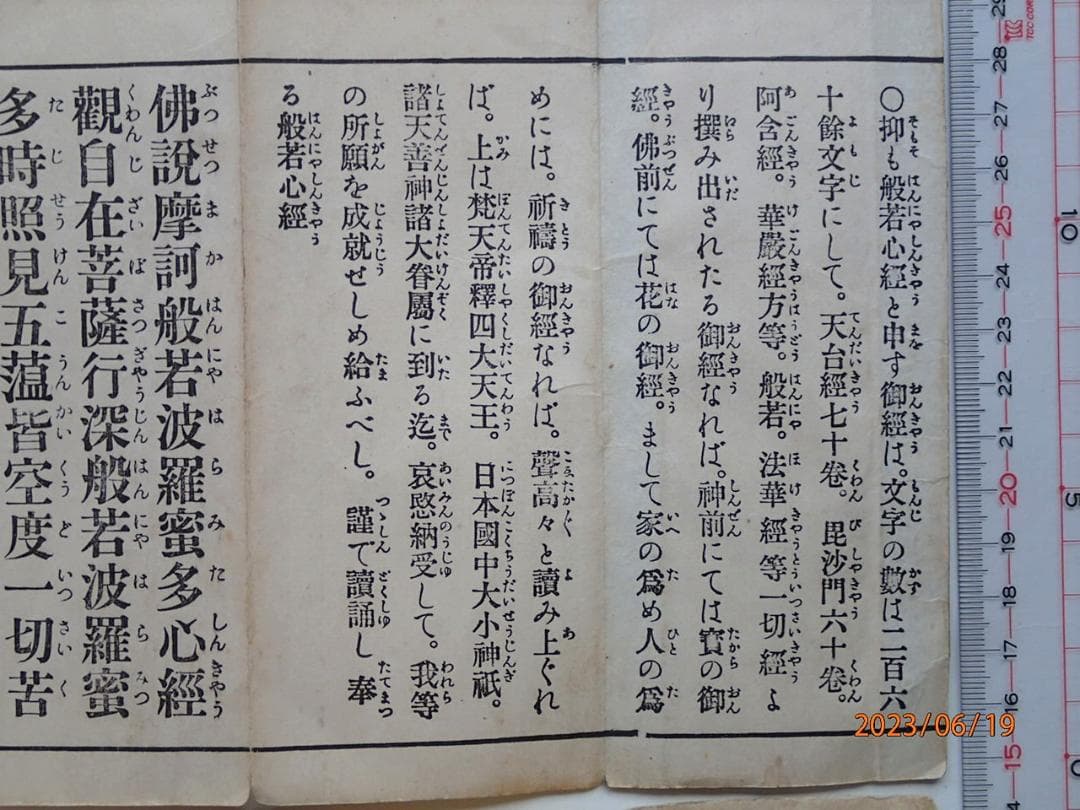 〇抑も般若心經と申す御經は。文字の數は二百六
十餘文字にして。天台經七十卷。毘沙門六十卷。
阿含經。華嚴經方等。般若。法華經等一切經よ
り撰み出されたる御經なれば。神前にては寶の御
經。佛前にては花の御經。まして家の爲め人の爲
めには。祈禱の御經なれば。聲高々と讀み上ぐれ
ば。上は梵天帝釋四大天王。日本國中大小神祇。
諸天善神諸大眷屬に到る迄。哀愍納受して。我等
の所願を成就せしめ給ふべし。謹で讀誦し奉
る般若心經
佛說摩訶般若波羅蜜多心經
觀自在菩薩行深般若波羅蜜
多時照見五蘊皆空度一切苦
2023/06/19